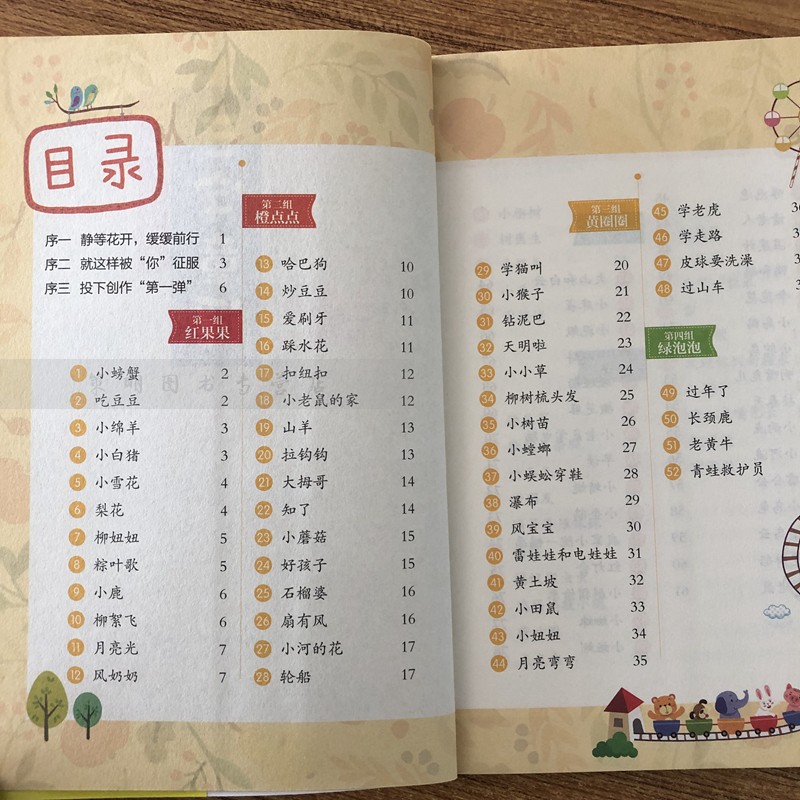 目录
序一 静等花开，缓缓前行 1
序二 就这样被“你”征服 3
序三 投下创作“第一弹” 6
第一组
红果果
1 小螃蟹 2
2 吃豆豆 2
3 小绵羊 3
4 小白猪 3
5 小雪花 4
6 梨花 4
7 柳妞妞 5
8 粽叶歌 5
9 小鹿 6
10 柳絮飞 6
11 月亮光 7
12 风奶奶 7
第二组
橙点点
13 哈巴狗 10
14 炒豆豆 10
15 爱刷牙 11
16 踩水花 11
17 扣纽扣 12
18 小老鼠的家 12
19 山羊 13
20 拉钩钩 13
21 大拇哥 14
22 知了 14
23 小蘑菇 15
24 好孩子 15
25 石榴婆 16
26 扇有风 16
27 小河的花 17
28 轮船 17
第三组
黄圈圈
29 学猫叫 20
30 小猴子 21
31 钻泥巴 22
32 天明啦 23
33 小小草 24
34 柳树梳头发 25
35 小树苗 26
36 小螳螂 27
37 小蜈蚣穿鞋 28
38 瀑布 29
39 风宝宝 30
40 雷娃娃和电娃娃 31
41 黄土坡 32
42 小田鼠 33
43 小妞妞 34
44 月亮弯弯 35
45 学老虎
46 学走路
47 皮球要洗澡
48 过山车
第四组
绿泡泡
49 过年了
50 长颈鹿
51 老黄牛
52 青蛙救护员